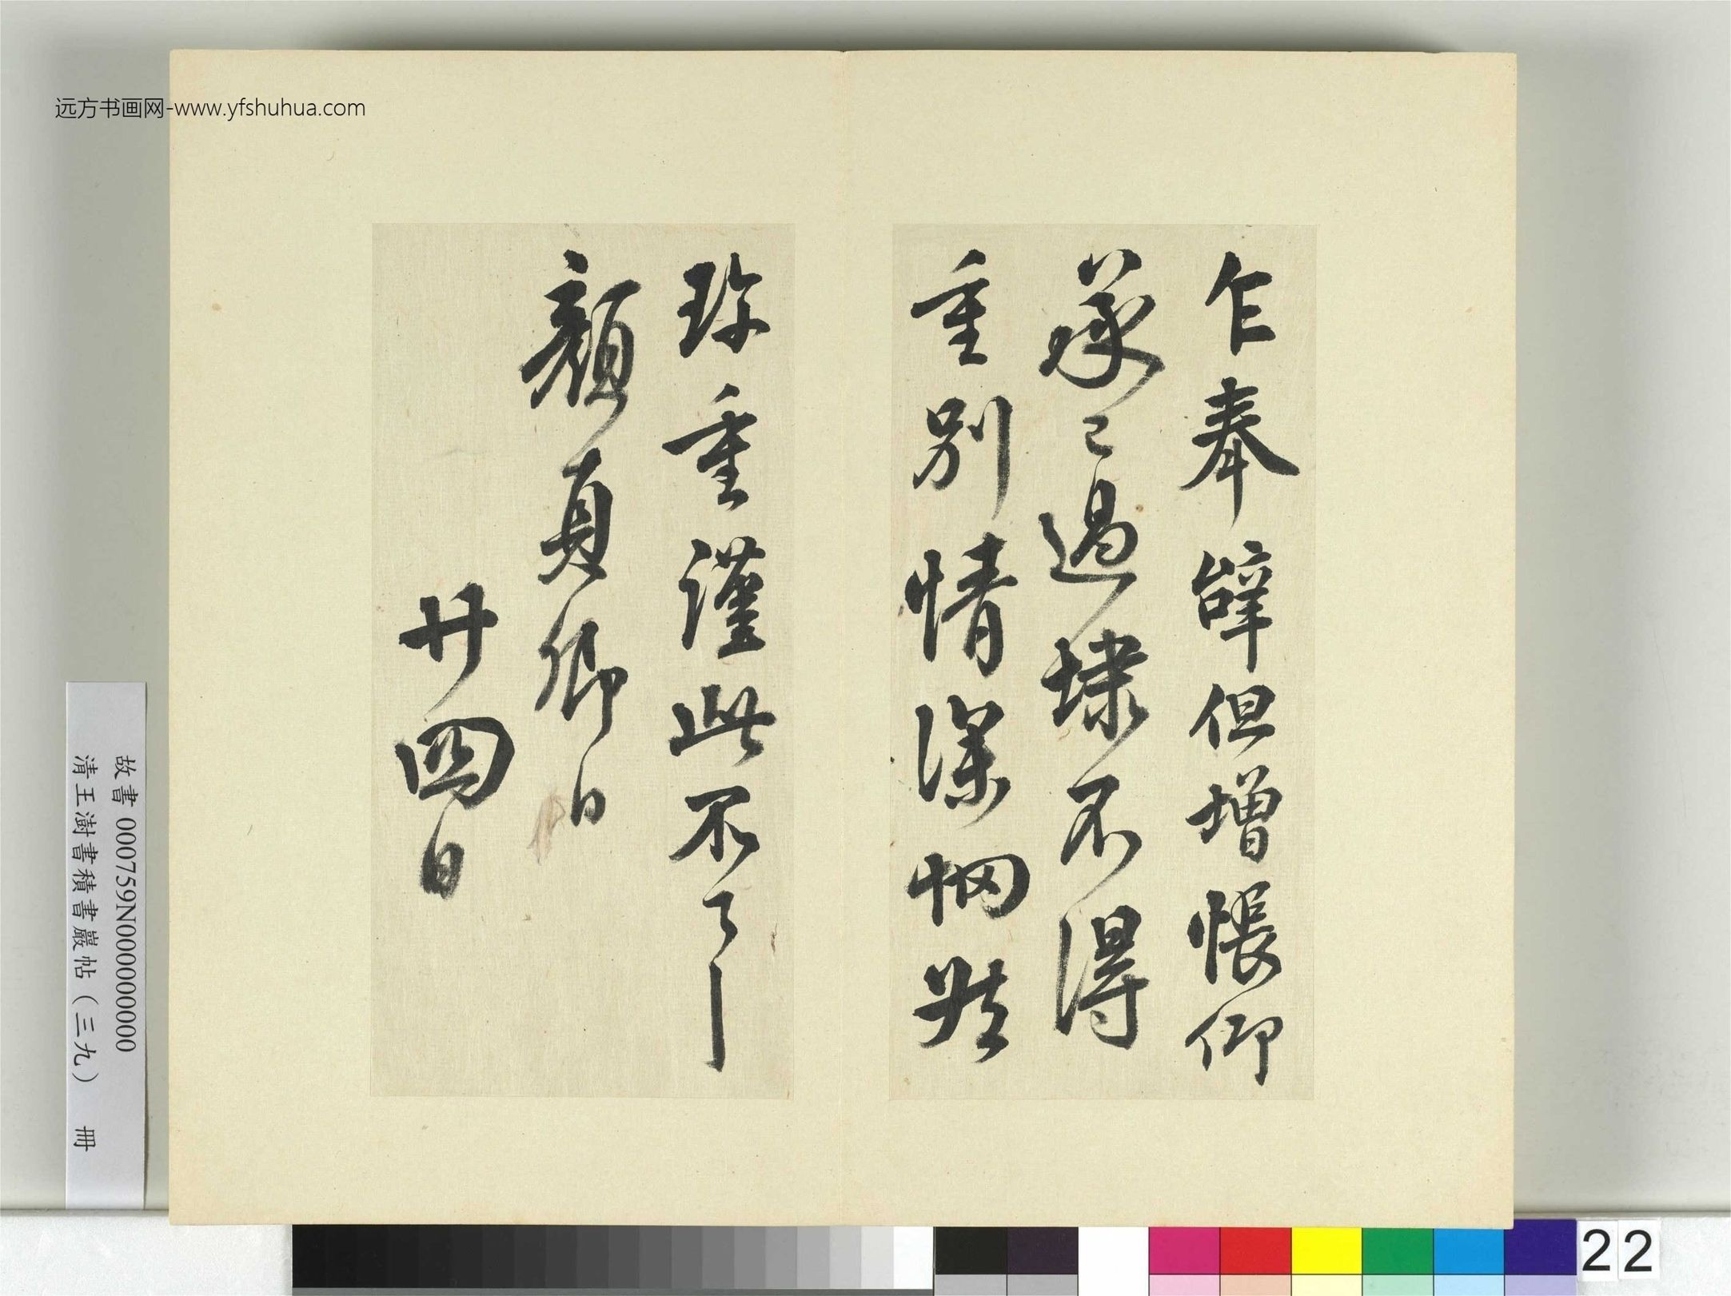 远方书画网-www.yfshuhua.com
乍奉辭但增悵仰
承已過埭不得
重別情深惘然
珍重謹此不
顏真卿白
廿四日
故書 000759N000000000
清王澍書積書巖帖(三九) 冊
22